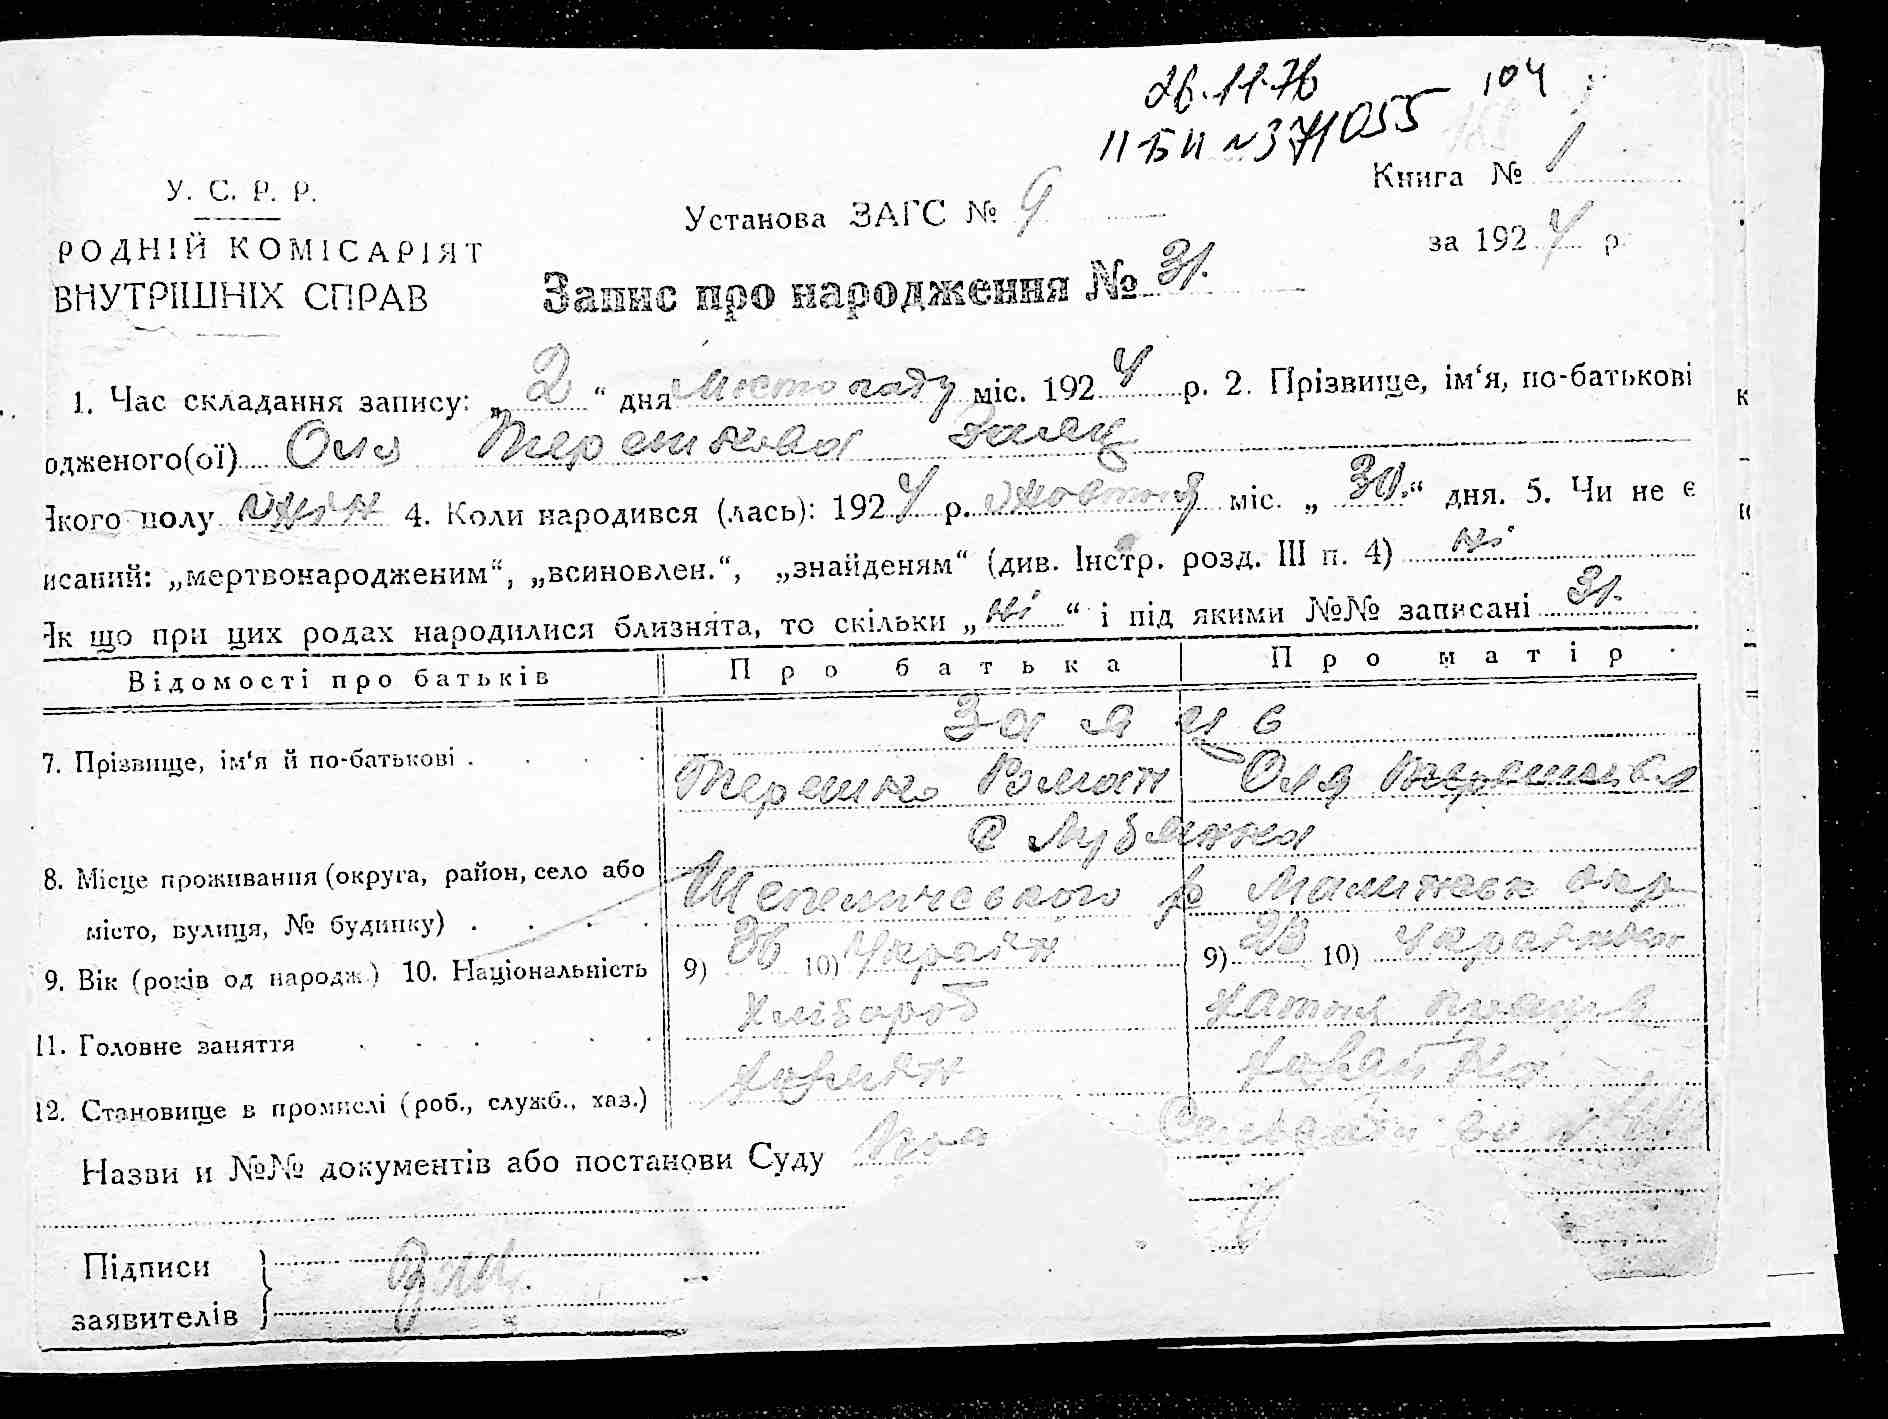 26.11.76
104
II БИ №371055
Книга № 1
У. С. Р. Р.
Установа ЗАГС № 9
за 1924 р.
РОДНІЙ КОМІСАРІЯТ
ВНУТРІШНІХ СПРАВ
Запис про народження № 31.
1. Час складання запису: „ 2 “ дня Листопаду міс. 1924 р. 2. Прізвище, ім‘я, по-батькові
одженого(ої) Оля Терешкова Заяц
Якого полу жін 4. Коли народився (лась): 1924 р. жовтня міс. „ 30. “ дня. 5. Чи не є
исаний: „мертвонародженим“, „всиновлен.“, „знайденям“ (див. Інстр. розд. III п. 4) ні
Як що при цих родах народилися близнята, то скільки „ ні “ і під якими №№ записані 31.
Відомості про батьків Про батька Про матір
7. Прізвище, ім‘я й по-батькові . . . . Заяць
Терешко Роман Оля
с Лубянка
8. Місце проживання (округа, район, село або
Шепелического р Малинськ окр
місто, вулиця, № будинку) . . . .
9. Вік (років од народж.) 10. Національність 9) 36 10) Україн 9) 23 10) Українка
11. Головне заняття . . . . . . Хлібороб хатня праця
12. Становище в промислі (роб., служб., хаз.) хозяїн хозяйка
Назви и №№ документів або постанови Суду
Підписи
заявителів